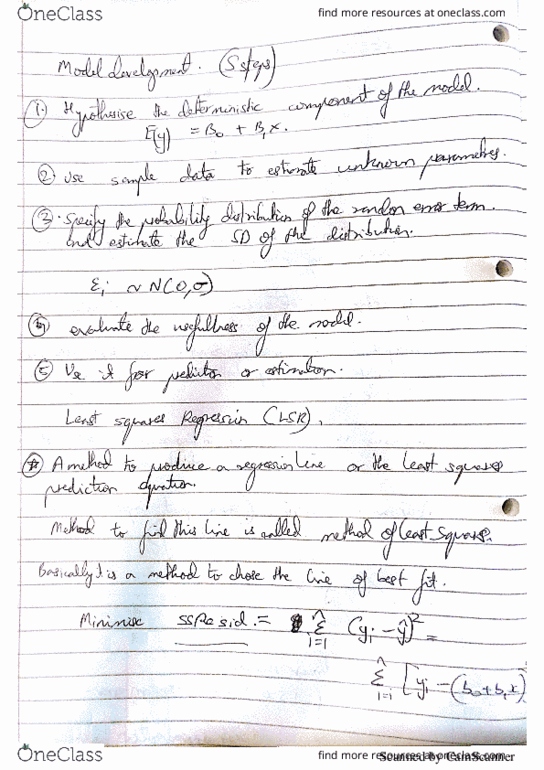 OneClass
find more resources at oneclass.com
Model development. (5 steps)
① Hypothesise the deterministic component of the model.
E(y) = B₀ + B₁x.
② Use sample data to estimate unknown parametres.
③ Specify the probability distribution of the random error term.
and estimate the SD of the distribution.
εᵢ ~ N(0,σ)
④ evaluate the usefullness of the model.
⑤ Use it for prediction or estimation.
Least squares Regression (LSR).
A method to produce a regression line or the least squares
prediction equation.
Method to find this line is called method of least square.
Basically it is a method to chose the line of best fit.
Minimise SSResid = Σ i=1 n (yᵢ - ŷ)² =
Σ i=1 n [yᵢ - (b₀+b₁x)
OneClass
find more resources at oneclass.com
Scanned by CamScanner